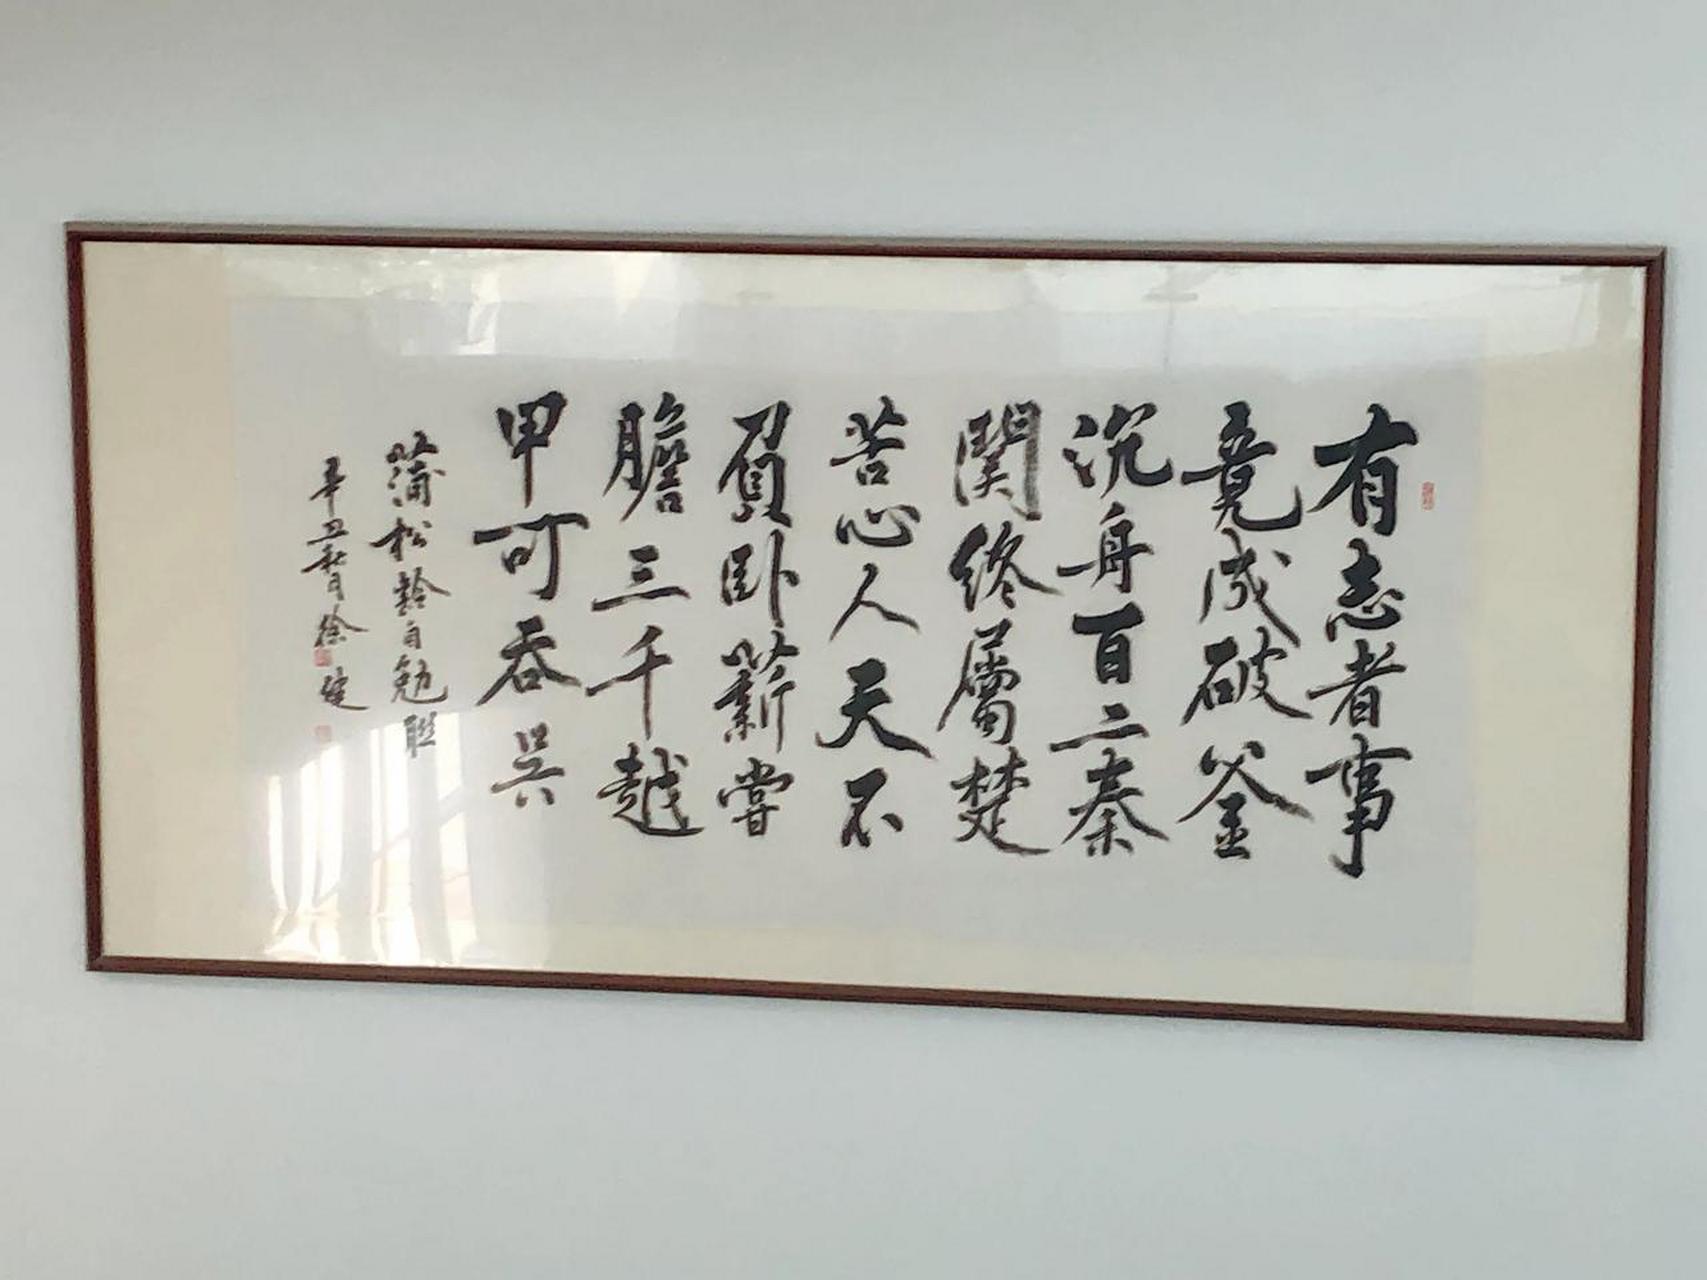 有志者事
竟成破釜
沉舟百二秦
関终屬楚
苦心人天不
負卧薪嘗
膽三千越
甲可吞吴
蒲松龄自勉聯
辛丑秋月徐健